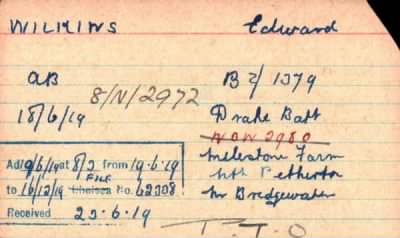 WILKINS Edward
AB BZ/1379
8/N/2972
18/6/19 Drake Batt
NOW 2980
Milestone Farm
Adl 9/6/19 at 8/2 from 19·6·19 Nth Petherton
FILE
to 16/12/19 Chelsea No. 62308 Nr Bridgewater
Received 23·6·19
P.T.O